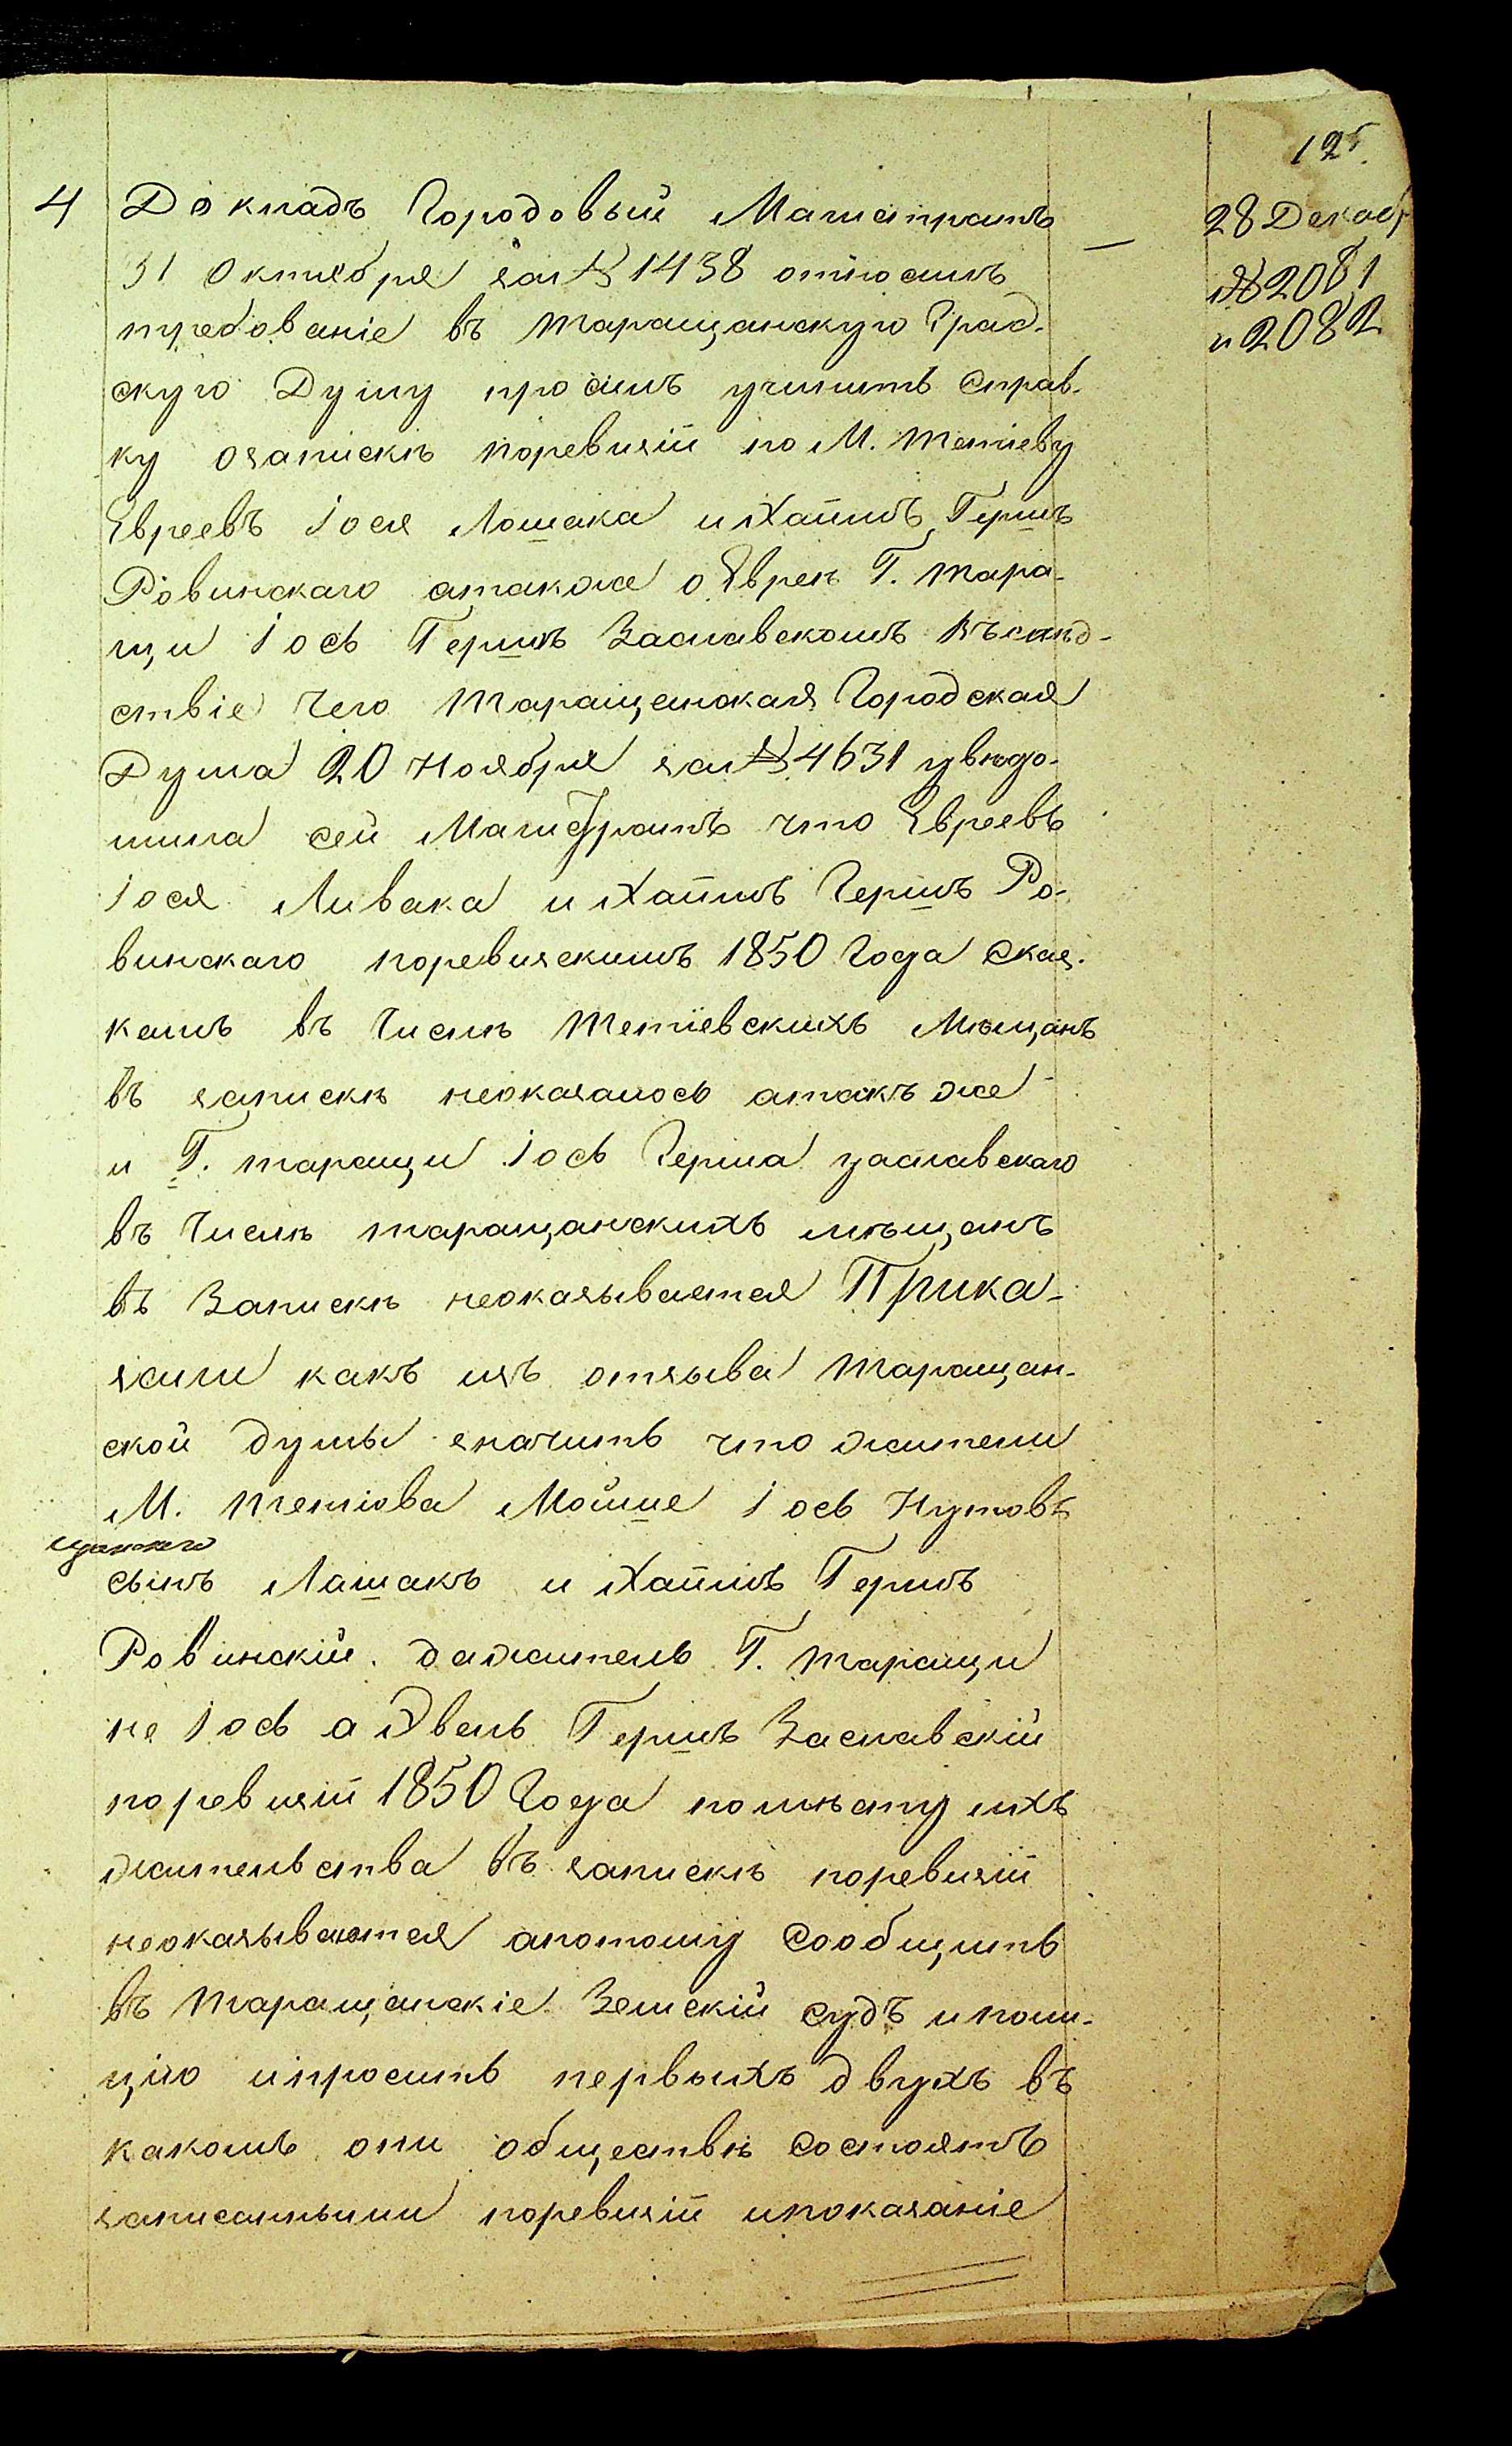 125.
4 Докладъ Городовый Магистратъ
31 Октября за № 1438 относилъ
требованіе въ Таращанскую Град-
скую Думу просилъ учинить справ-
ку озапискѣ поревизіи по М. Тетіеву
Евреевъ Іося Лошака и Хаимъ Гершъ
Ровинскаго атакже о Евреѣ Г. Тара-
щи Іось Гершѣ Заславскомъ Въслѣд-
ствіе чего Таращанская Городская
Дума 20 Ноября за № 4631 увѣдо-
мила сей Магистратъ что Евреевъ
Іося Ливака и Хаимъ Гершъ Ро-
винскаго поревизскимъ 1850 Года Сказ-
камъ въ Числѣ Тетіевскихъ Мѣщанъ
въ запискѣ неоказалось атакъ же
и Г. Таращи Іось Герша Заславскаго
въ Числѣ Таращанскихъ мѣщанъ
въ Запискѣ неоказывается Прика-
зали какъ изъ отзыва Таращан-
ской думы значитъ что жители
М. Тетіова Мойше Іось Нутовъ
сынъ Лашакъ и Хаимъ Гершъ
Ровинскій. да житель Г. Таращи
не Іось а Эвель Гершъ Заславскій
поревизіи 1850 Года помѣсту ихъ
жительства въ запискѣ поревизіи
неоказываются апотому Сообщить
въ Таращанскіе Земскій судъ и поли-
цію ипросить первыхъ двухъ въ
какомъ они обществѣ Состоятъ
записанными поревизіи ипоказаніе
28 Декабр
№ 2081
и 2082